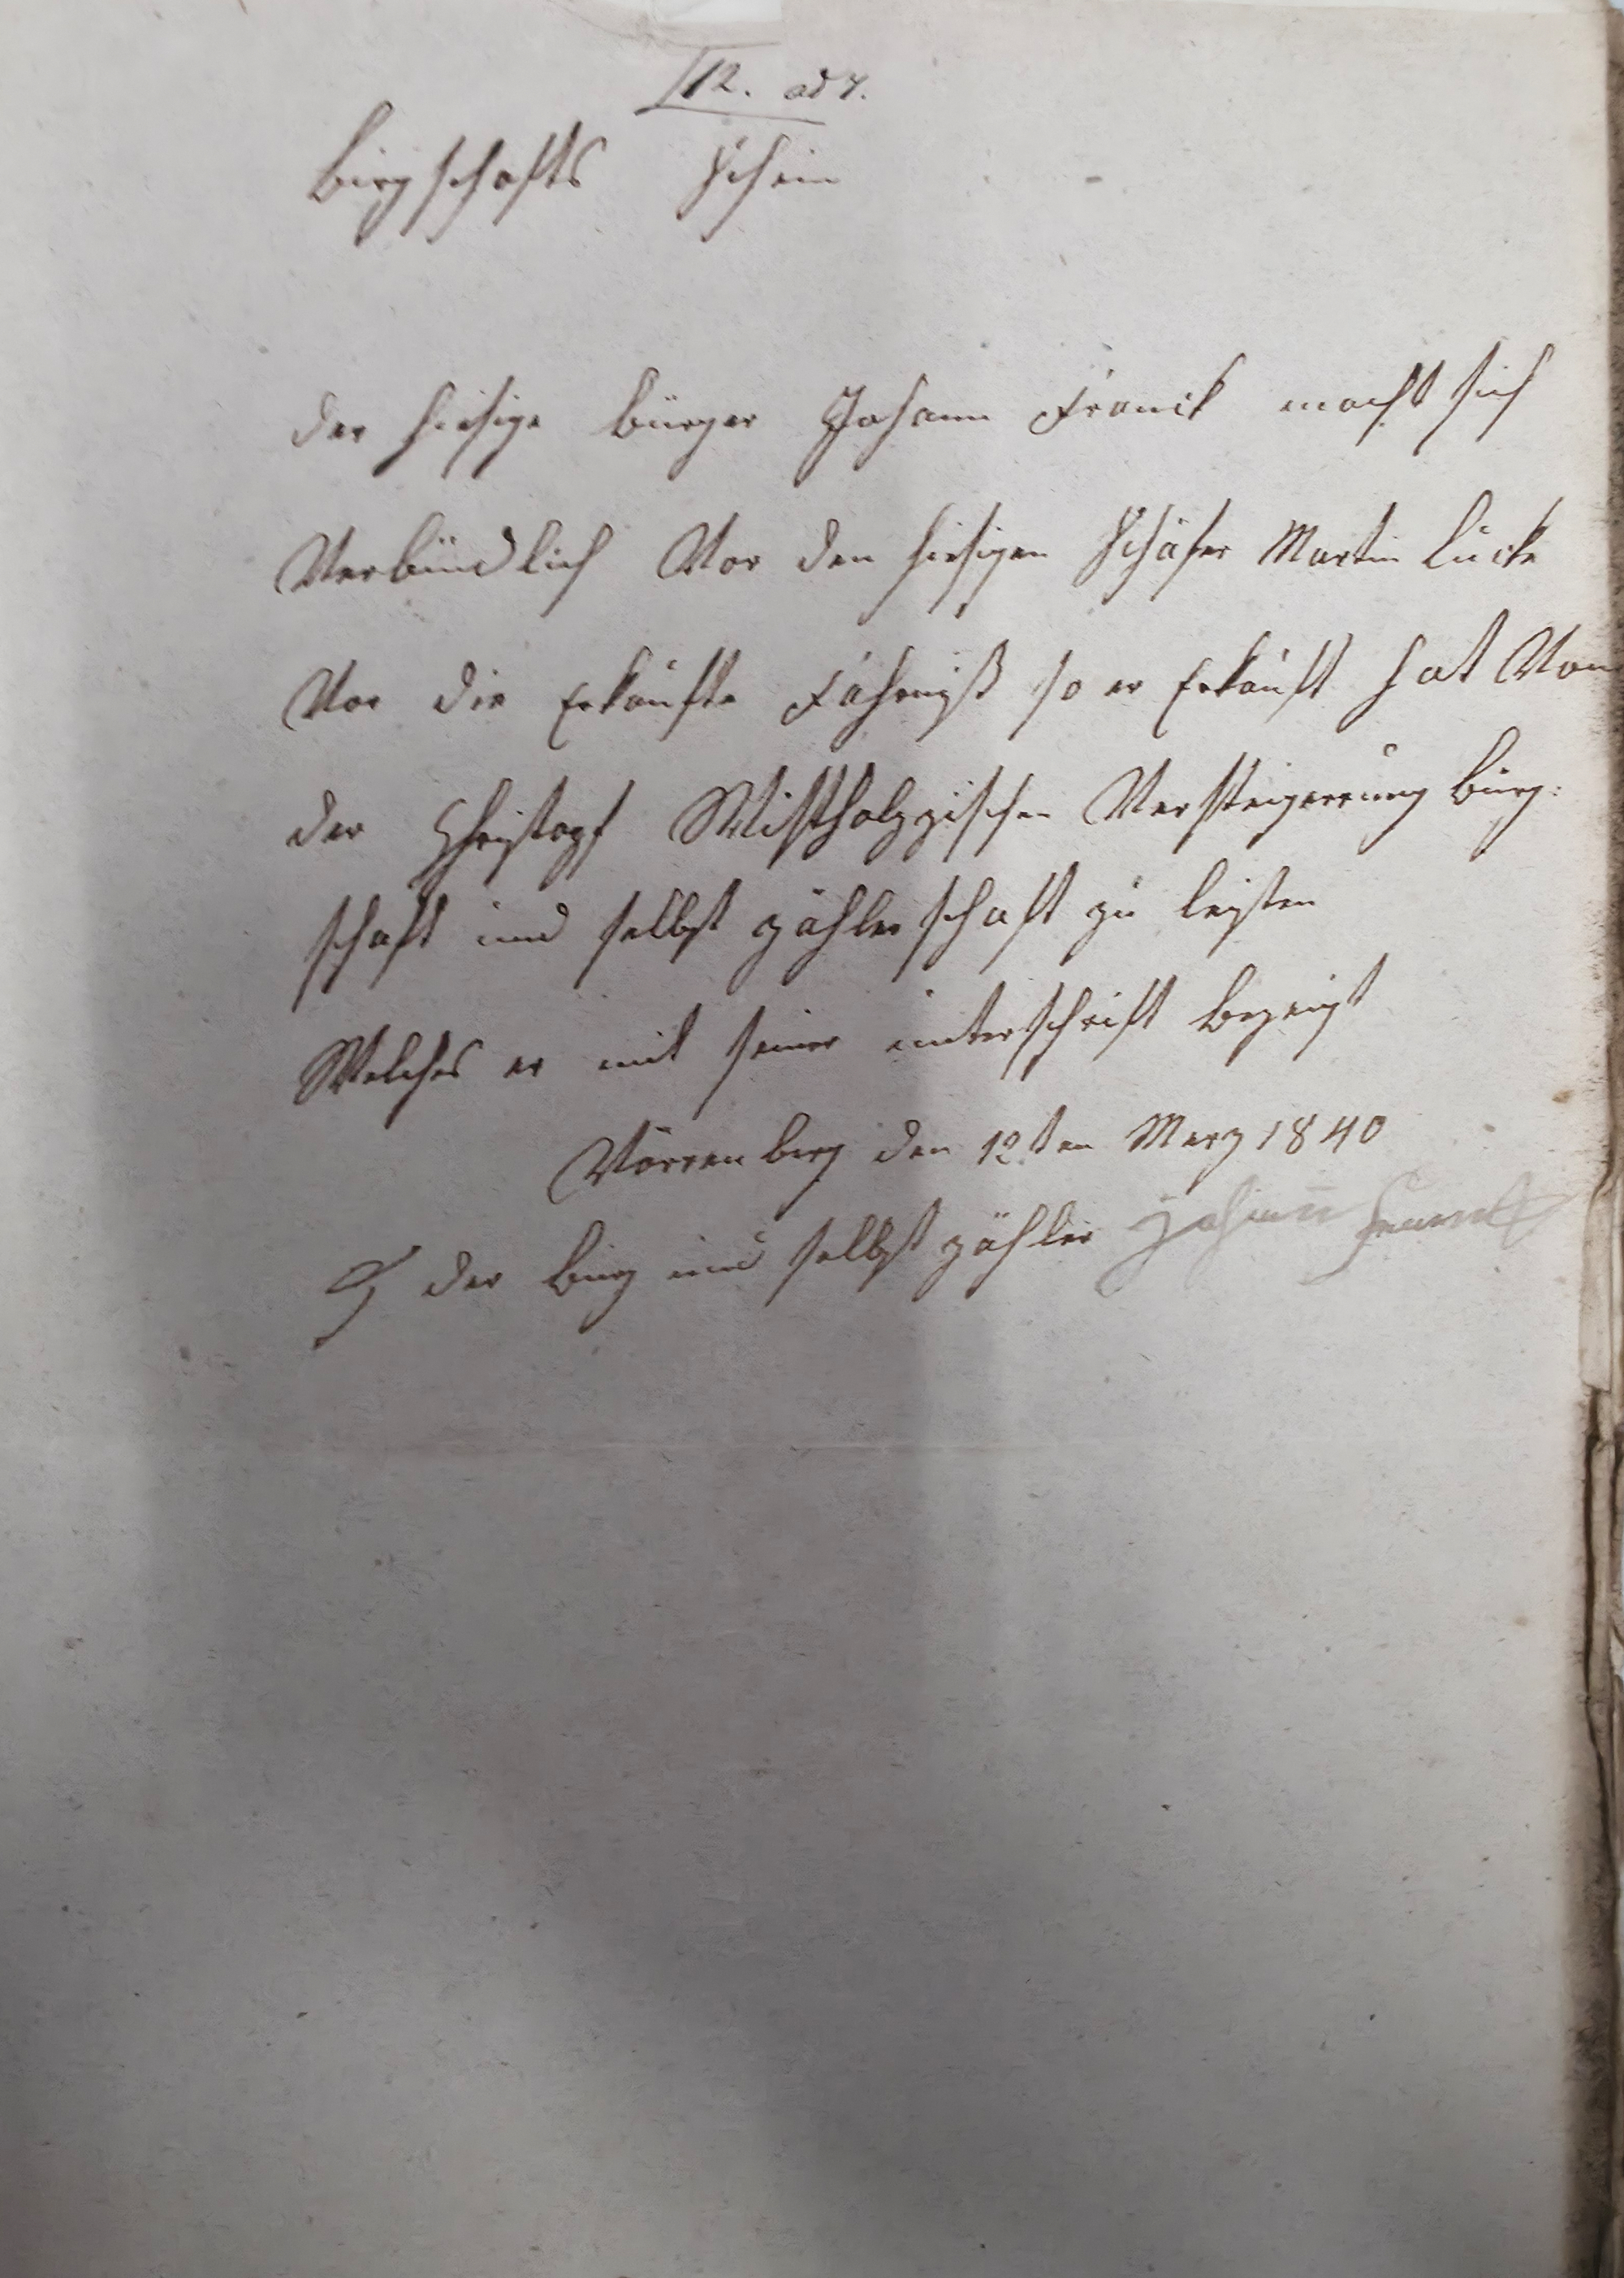 12. ad 7.
Birgschafts Schein
der hiesige Bürger Johann Franck macht sich
Verbündlich Vor den hiesigen Schäfer Martin Lücke
Vor die Erkaufte Fahrniß so er Erkauft hat Von
der Christopf Mistholzischen Versteigerrung Bürg:
schaft und selbst zähler schaft zu leisten
Welches er mit seiner unterschrift bezeigt
Vörrenberg den 12ten Merz 1840
der Burg und selbst zähler Johann Franck